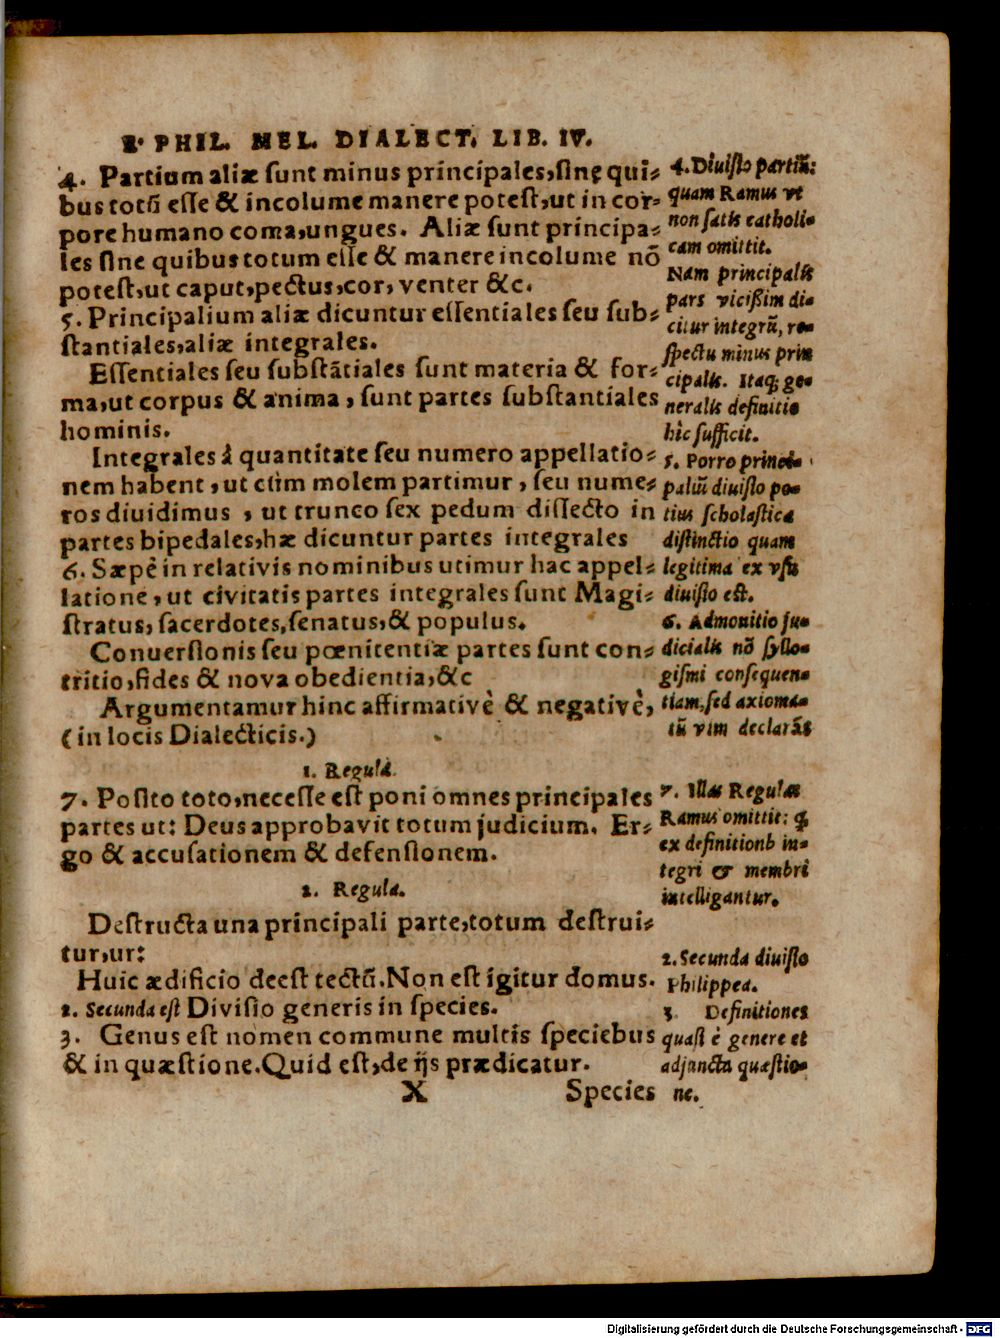 E. PHIL. MEL. DIALECT. LIB. IV.
4. Partium aliæ ſunt minus principales, ſine qui-
bus totũ eſſe & incolume manere poteſt, ut in cor-
pore humano coma, ungues. Aliæ ſunt principa-
les ſine quibus totum eſſe & manere incolume nõ
poteſt, ut caput, pectus, cor, venter &c.
5. Principalium aliæ dicuntur eſſentiales ſeu ſub-
ſtantiales, aliæ integrales.
Eſſentiales ſeu ſubſtãtiales ſunt materia & for-
ma, ut corpus & anima, ſunt partes ſubſtantiales
hominis.
Integrales â quantitate ſeu numero appellatio-
nem habent, ut cùm molem partimur, ſeu nume-
ros diuidimus, ut trunco ſex pedum diſſecto in
partes bipedales, hæ dicuntur partes integrales
6. Sæpè in relativis nominibus utimur hac appel-
latione, ut civitatis partes integrales ſunt Magi-
ſtratus, ſacerdotes, ſenatus, & populus.
Converſionis ſeu pœnitentiæ partes ſunt con-
tritio, fides & nova obedientia, &c
Argumentamur hinc affirmativè & negativè,
(in locis Dialecticis.)
1. Regula.
7. Poſito toto, neceſſe eſt poni omnes principales
partes ut: Deus approbavit totum judicium. Er-
go & accuſationem & defenſionem.
2. Regula.
Deſtructa una principali parte, totum deſtrui-
tur, ut:
Huic ædificio deeſt tectũ. Non eſt igitur domus.
2. Secunda eſt Diviſio generis in ſpecies.
3. Genus eſt nomen commune multis ſpeciebus
& in quæſtione. Quid eſt, de ijs prædicatur.
X Species
4. Diuiſio partiũ:
quam Ramus vt
non ſatis catholi-
cam omittit.
Nam principalis
pars viciſſim di-
citur integrũ, re-
ſpectu minus prin
cipalis. Itaq; ge-
neralis definitio
hîc ſufficit.
5. Porro princi-
paliũ diuiſio po-
tius ſcholaſtica
diſtinctio quam
legitima ex vſu
diuiſio eſt.
6. Admonitio ju-
dicialis nõ ſyllo-
giſmi conſequen-
tiam, ſed axioma-
tũ vim declarãs
7. Illas Regulas
Ramus omittit: q̃
ex definitionb in-
tegri & membri
intelligantur.
2. Secunda diuiſio
Philippea.
3 Definitiones
quaſi è genere et
adjuncta quæſtio-
ne.
Digitalisierung gefördert durch die Deutsche Forschungsgemeinschaft - DFG